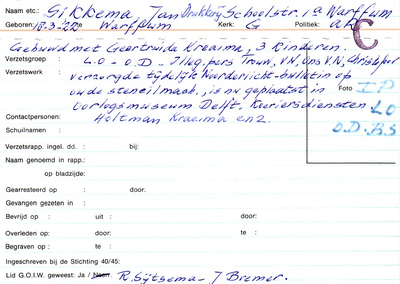 Naam etc.: Sikkema Jan Drukkerij Schoolstr. 1a Warffum
Geboren: 18-3-22 Warffum Kerk: G Politiek: AR
C
Gehuwd met Geertruida Kraaima, 3 Kinderen.
Verzetsgroep : L.O - O.D - Illeg. pers Trouw, V.N, Ons V.N, Christofoor
Verzetswerk : verzorgde tijdelijk Noorderlicht-bulletin op
oude stencilmach., is nu geplaatst in Foto I P
Oorlogsmuseum Delft. Koeriersdiensten L O
Contactpersonen: Holtman Kraeima enz. O.D. BS
Schuilnamen :
Verzetsrapp. ingel. dd. : bij:
Naam genoemd in rapp.:
op bladzijde:
Gearresteerd op : door:
Gevangen gezeten in :
Bevrijd op : uit : door:
Overleden op : te : door:
Begraven op : te :
Ingeschreven bij de Stichting 40/45:
Lid G.O.I.W. geweest: Ja / Neen. R. Sijtsema - J Bremer.